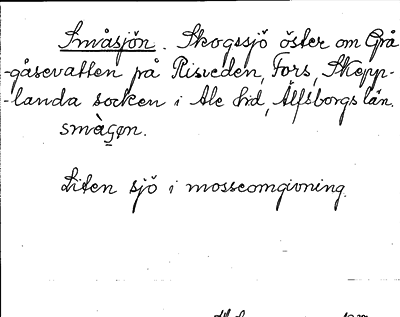 Småsjön. Skogssjö öster om Grå
-gåsevatten på Risveden, Fors, Skepp-
-landa socken i Ale hd, Älfsborgs län.
småg̬ən.
Liten sjö i mosseomgivning.